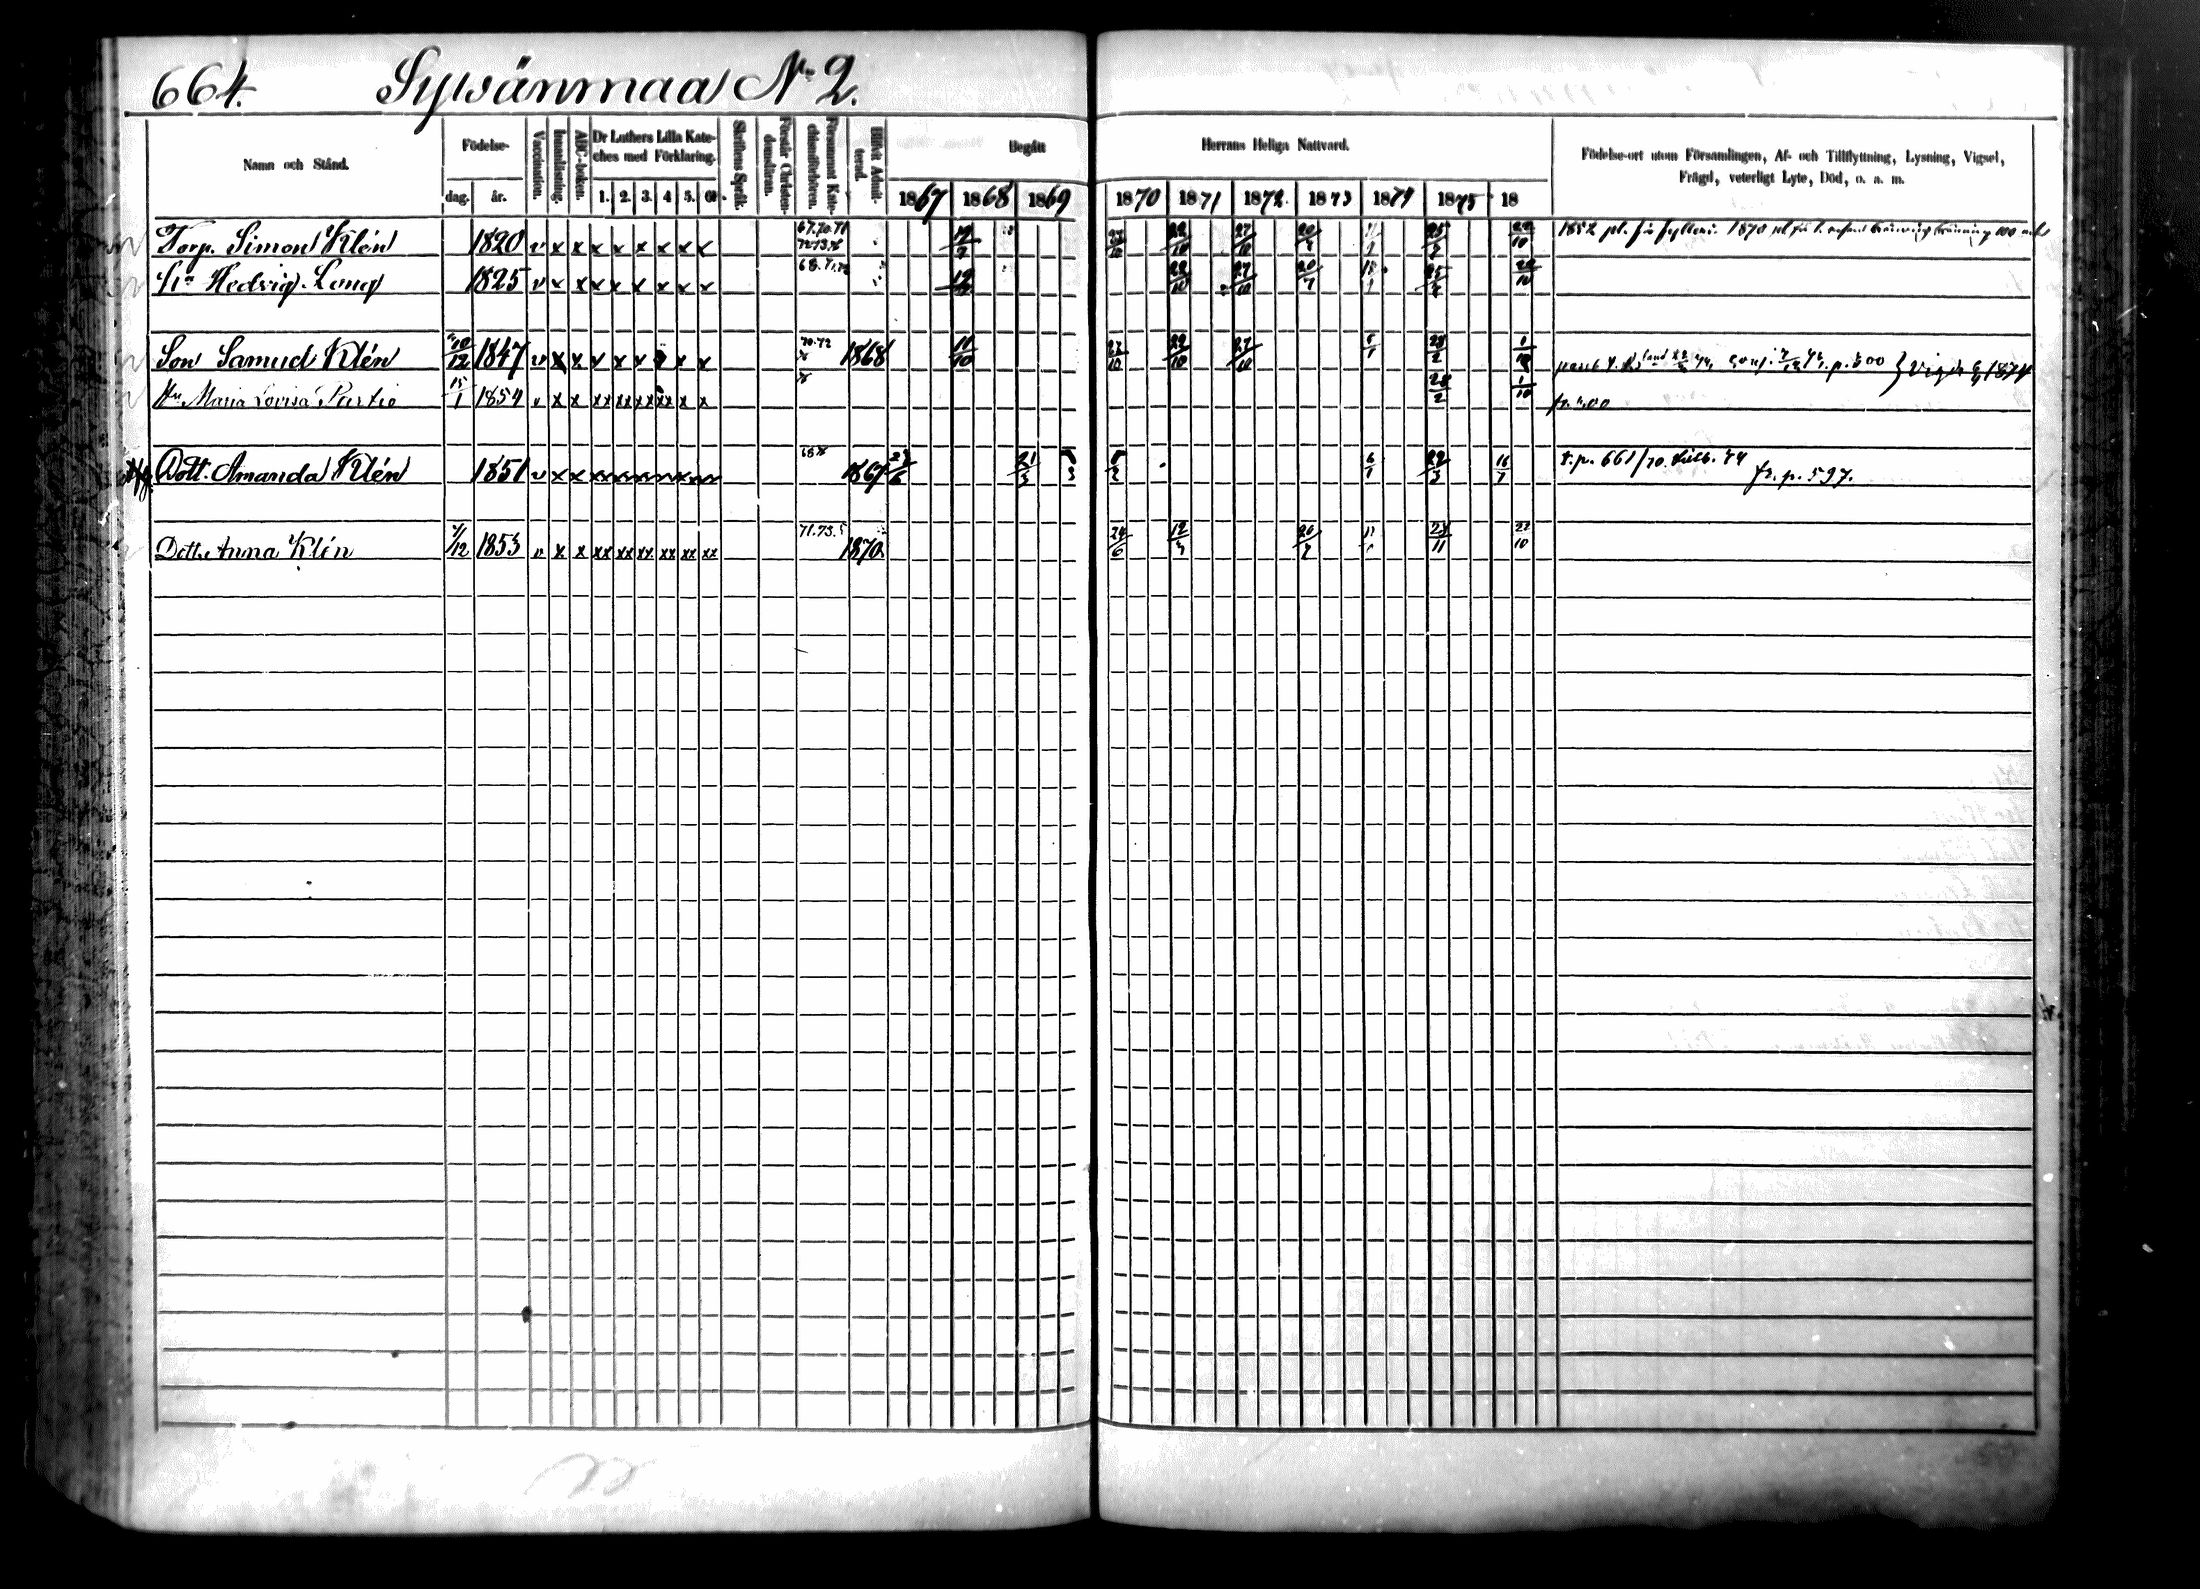 664. Sywänmaa No 2.
Namn och Stånd.
Födelse-
dag. år.
Vaccination.
Innanläsning.
ABC-boken.
Dr Luthers Lilla Kate-
ches med Förklaring.
1. 2. 3. 4 5. 6
Skriftens Språk.
Förstår Christen-
domsläran.
Försummat Kate-
chismiförhören.
Blifvit Admit-
terad.
Begått Herrans Heliga Nattvard.
1867 1868 1869 1870 1871 1872 1873 1874 1875 18
Födelse-ort utom Församlingen, Af- och Tillflyttning, Lysning, Vigsel,
Frägd, veterligt Lyte, Död, o. a. m.
Torp. Simon Klén 1820 v x x x x x x x x 67.70.71 19/7 27/10 22/10 27/10 20/7 25/2 22/10 1852 1870
72.73.
Hu Hedvig 1825 v x x x x x x x x 68.71.72 22/10 27/10 20/7 25/2 22/10
Son Samuel Klén 10/12 1847 v x x v x x x x 70.72 1868 11/10 27/10 22/10 27/10 6/1 28/2 1/10 Vigde 1874
Hu Maria Lovisa Partio 15/1 1854 v x x xx xx xx xx x x 28/2 1/10
Dott. Amanda Klén 1851 v x x 68 1867 6/1 29/3 16/7 t. p. 661/70.
fr. p. 597.
Dott. Anna Klén 1853 v x x xx xx xx xx xx xx 71.73. 1870 24/6 12/7 20/7 22/10